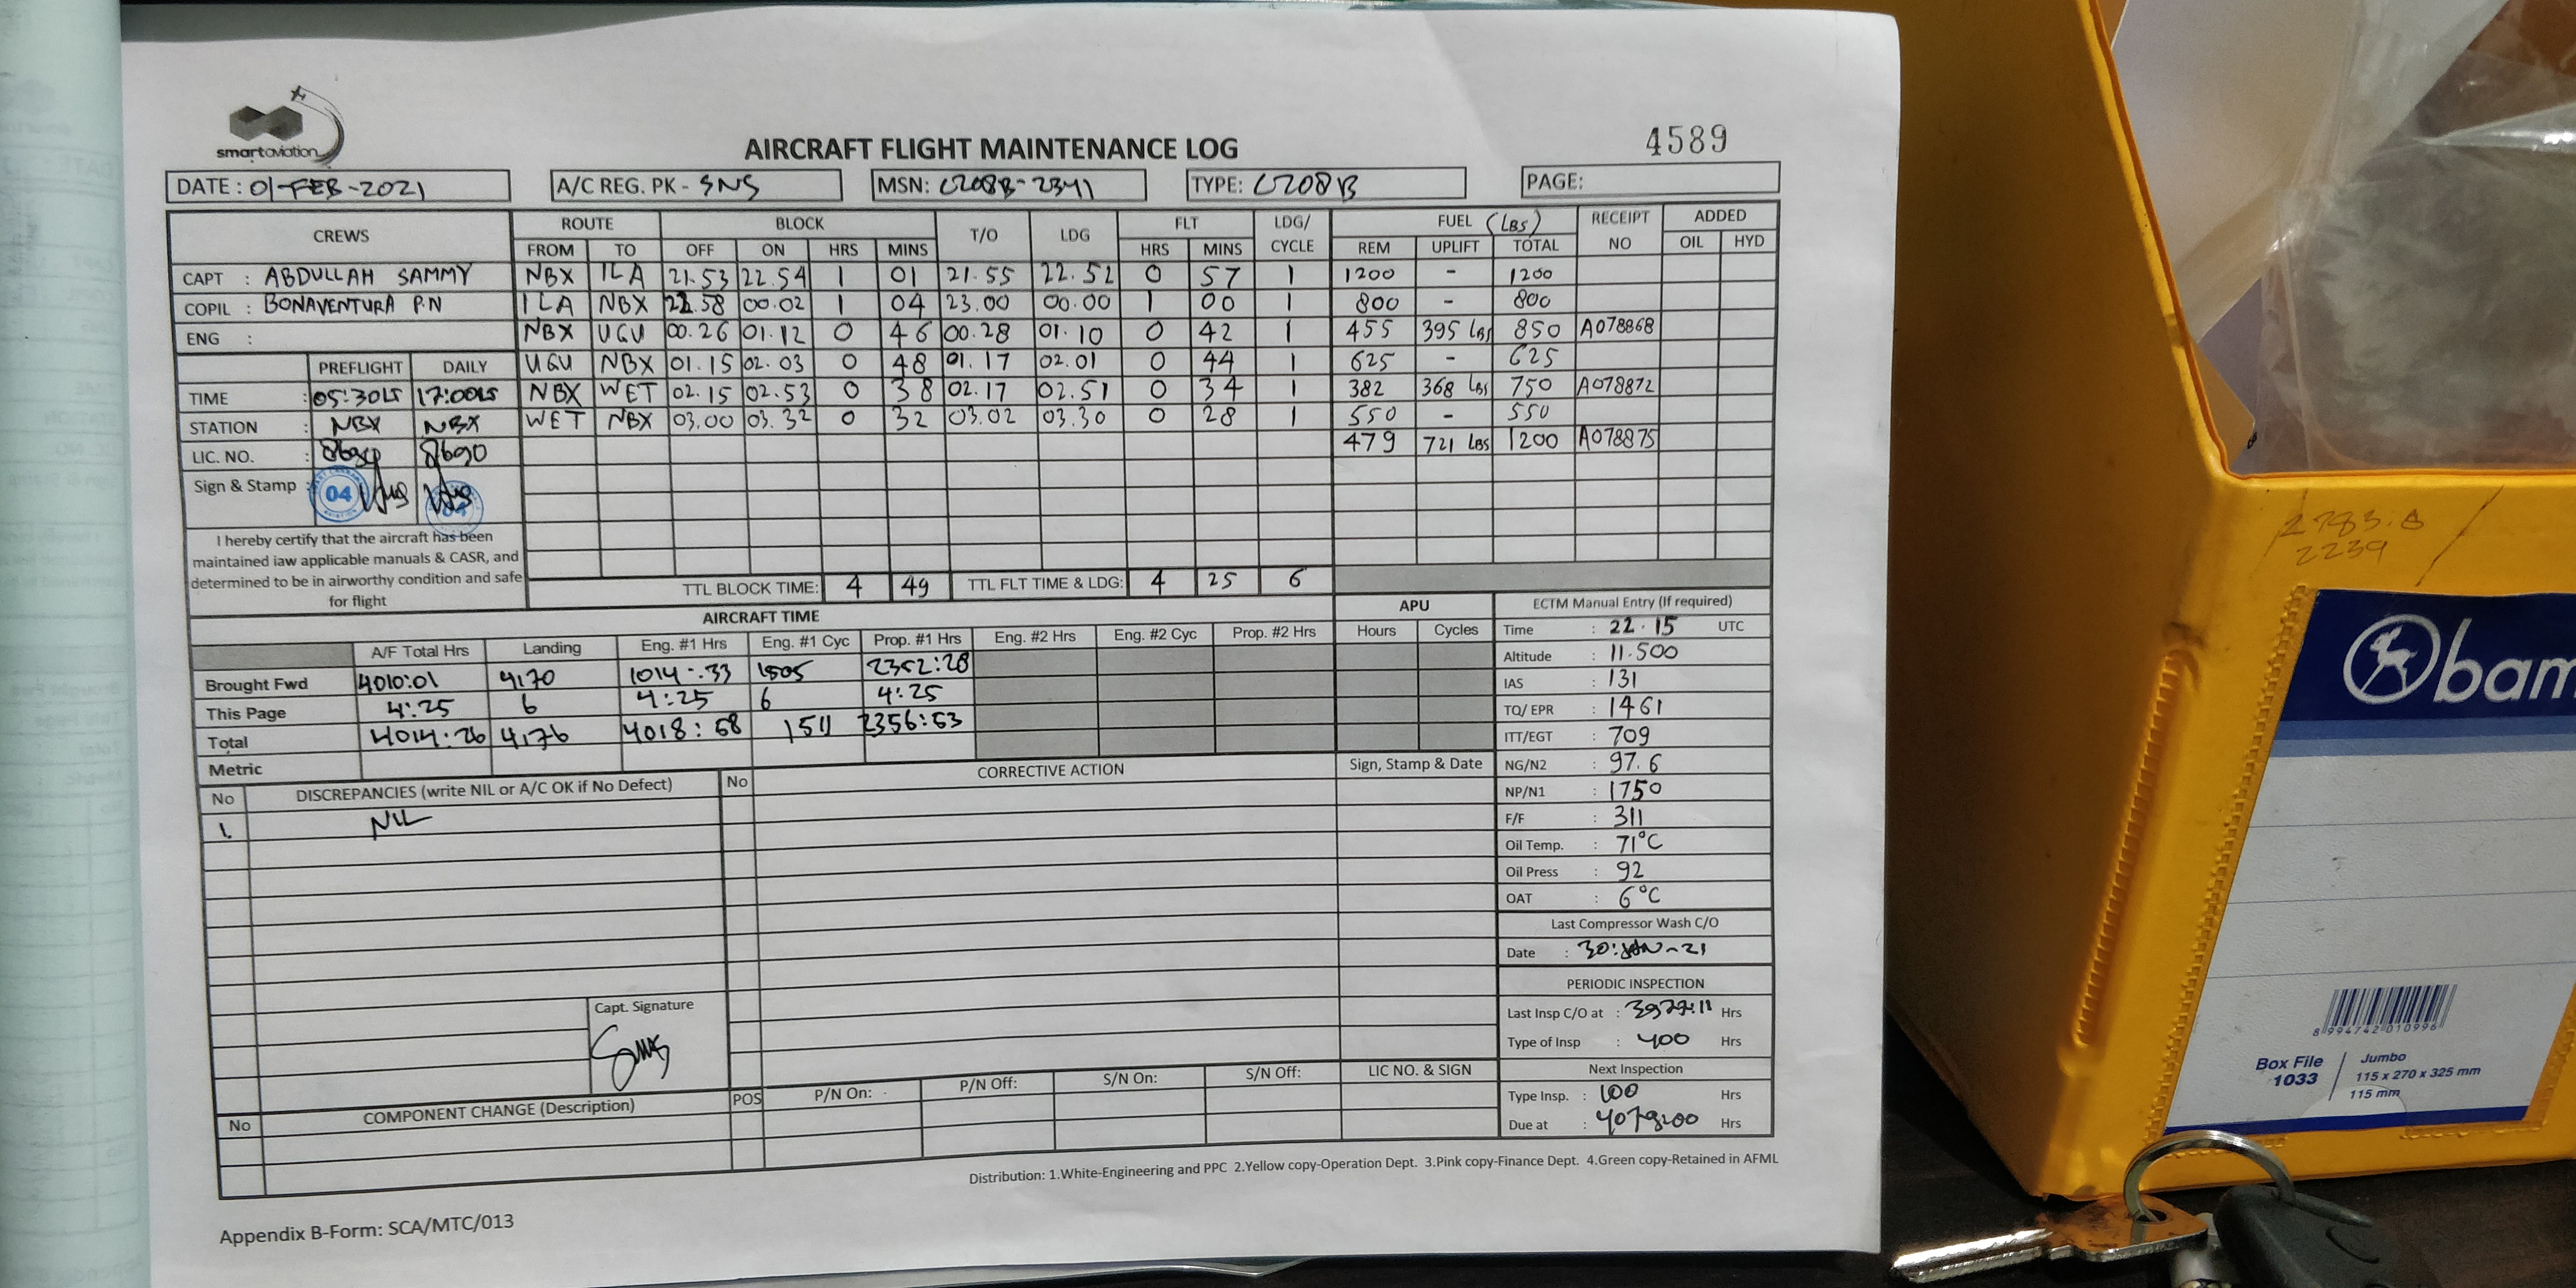 smartaviation
AIRCRAFT FLIGHT MAINTENANCE LOG
4589
DATE: 01-FEB-2021 A/C REG. PK - SNS MSN: C208B-2341 TYPE: C208B PAGE:
CREWS ROUTE BLOCK T/O LDG FLT LDG/ CYCLE FUEL (LBS) RECEIPT NO ADDED
FROM TO OFF ON HRS MINS HRS MINS REM UPLIFT TOTAL OIL HYD
CAPT : ABDULLAH SAMMY NBX ILA 21.53 22.54 1 01 21.55 22.52 0 57 1 1200 - 1200
COPIL : BONAVENTURA P.N ILA NBX 22.58 00.02 1 04 23.00 00.00 1 00 1 800 - 800
ENG : NBX UGU 00.26 01.12 0 46 00.28 01.10 0 42 1 455 395 LBS 850 A078868
PREFLIGHT DAILY UGU NBX 01.15 02.03 0 48 01.17 02.01 0 44 1 625 - 625
TIME : 05:30LT 17:00LT NBX WET 02.15 02.53 0 38 02.17 02.51 0 34 1 382 368 LBS 750 A078872
STATION : NBX NBX WET NBX 03.00 03.32 0 32 03.02 03.30 0 28 1 550 - 550
LIC. NO. : 8690 8690 479 721 LBS 1200 A078875
Sign & Stamp : 04 04
I hereby certify that the aircraft has been
maintained iaw applicable manuals & CASR, and
determined to be in airworthy condition and safe
for flight
TTL BLOCK TIME: 4 49 TTL FLT TIME & LDG: 4 25 6
AIRCRAFT TIME APU
A/F Total Hrs Landing Eng. #1 Hrs Eng. #1 Cyc Prop. #1 Hrs Eng. #2 Hrs Eng. #2 Cyc Prop. #2 Hrs Hours Cycles
Brought Fwd 4010:01 4170 1014:33 1505 2352:28
This Page 4:25 6 4:25 6 4:25
Total 4014:26 4176 4018:58 1511 2356:53
Metric
ECTM Manual Entry (If required)
Time : 22.15 UTC
Altitude : 11.500
IAS : 131
TQ/ EPR : 1461
ITT/EGT : 709
NG/N2 : 97.6
NP/N1 : 1750
F/F : 311
Oil Temp. : 71°C
Oil Press : 92
OAT : 6°C
Last Compressor Wash C/O
Date : 30-JAN-21
PERIODIC INSPECTION
Last Insp C/O at : Hrs
Type of Insp : 400 Hrs
Next Inspection
Type Insp. : 100 Hrs
Due at : Hrs
No DISCREPANCIES (write NIL or A/C OK if No Defect) No CORRECTIVE ACTION Sign, Stamp & Date
1. NIL
Capt. Signature
No COMPONENT CHANGE (Description) POS P/N On: P/N Off: S/N On: S/N Off: LIC NO. & SIGN
Distribution: 1.White-Engineering and PPC 2.Yellow copy-Operation Dept. 3.Pink copy-Finance Dept. 4.Green copy-Retained in AFML
Appendix B-Form: SCA/MTC/013
2239
bam
8 994742 010996
Box File
1033
Jumbo
115 x 270 x 325 mm
115 mm